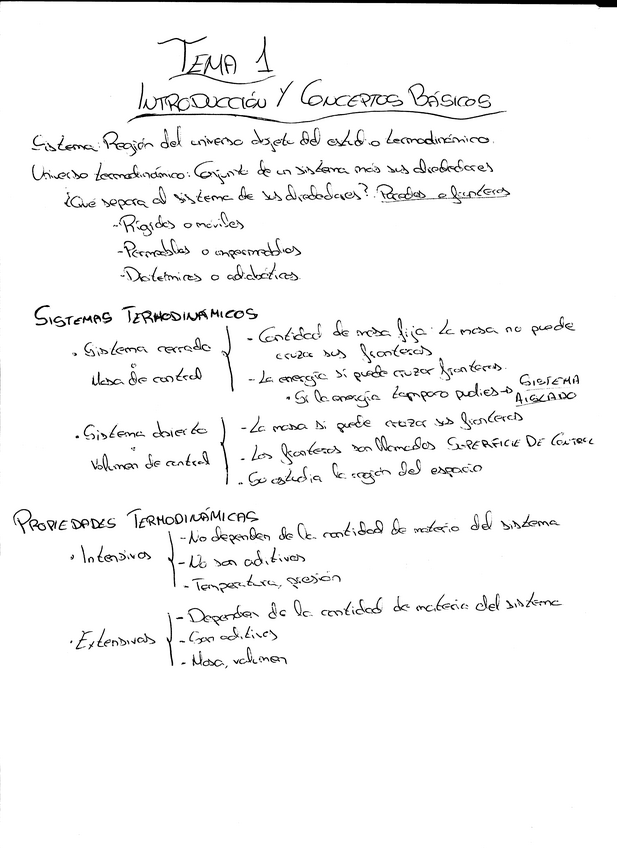 TEMA 1
INTRODUCCIÓN Y CONCEPTOS BÁSICOS
Sistema: Región del universo objeto del estudio termodinámico.
Universo termodinámico: Conjunto de un sistema más sus alrededores
¿Qué separa al sistema de sus alrededores?. Paredes o fronteras
-Rígidas o móviles
-Permeables o impermeables
-Diatérmicas o adiabáticas
SISTEMAS TERMODINÁMICOS
- Cantidad de masa fija: La masa no puede
cruzar sus fronteras
• Sistema cerrado
o
Masa de control
- La energía sí puede cruzar fronteras.
• Si la energía tampoco pudiese → SISTEMA
AISLADO
• Sistema abierto
o
Volumen de control
- La masa sí puede cruzar sus fronteras
- Las fronteras son llamadas SUPERFICIE DE CONTROL
- Se estudia la región del espacio
PROPIEDADES TERMODINÁMICAS
• Intensivas
- No dependen de la cantidad de materia del sistema
- No son aditivas
- Temperatura, presión
• Extensivas
- Dependen de la cantidad de materia del sistema
- Son aditivas
- Masa, volumen